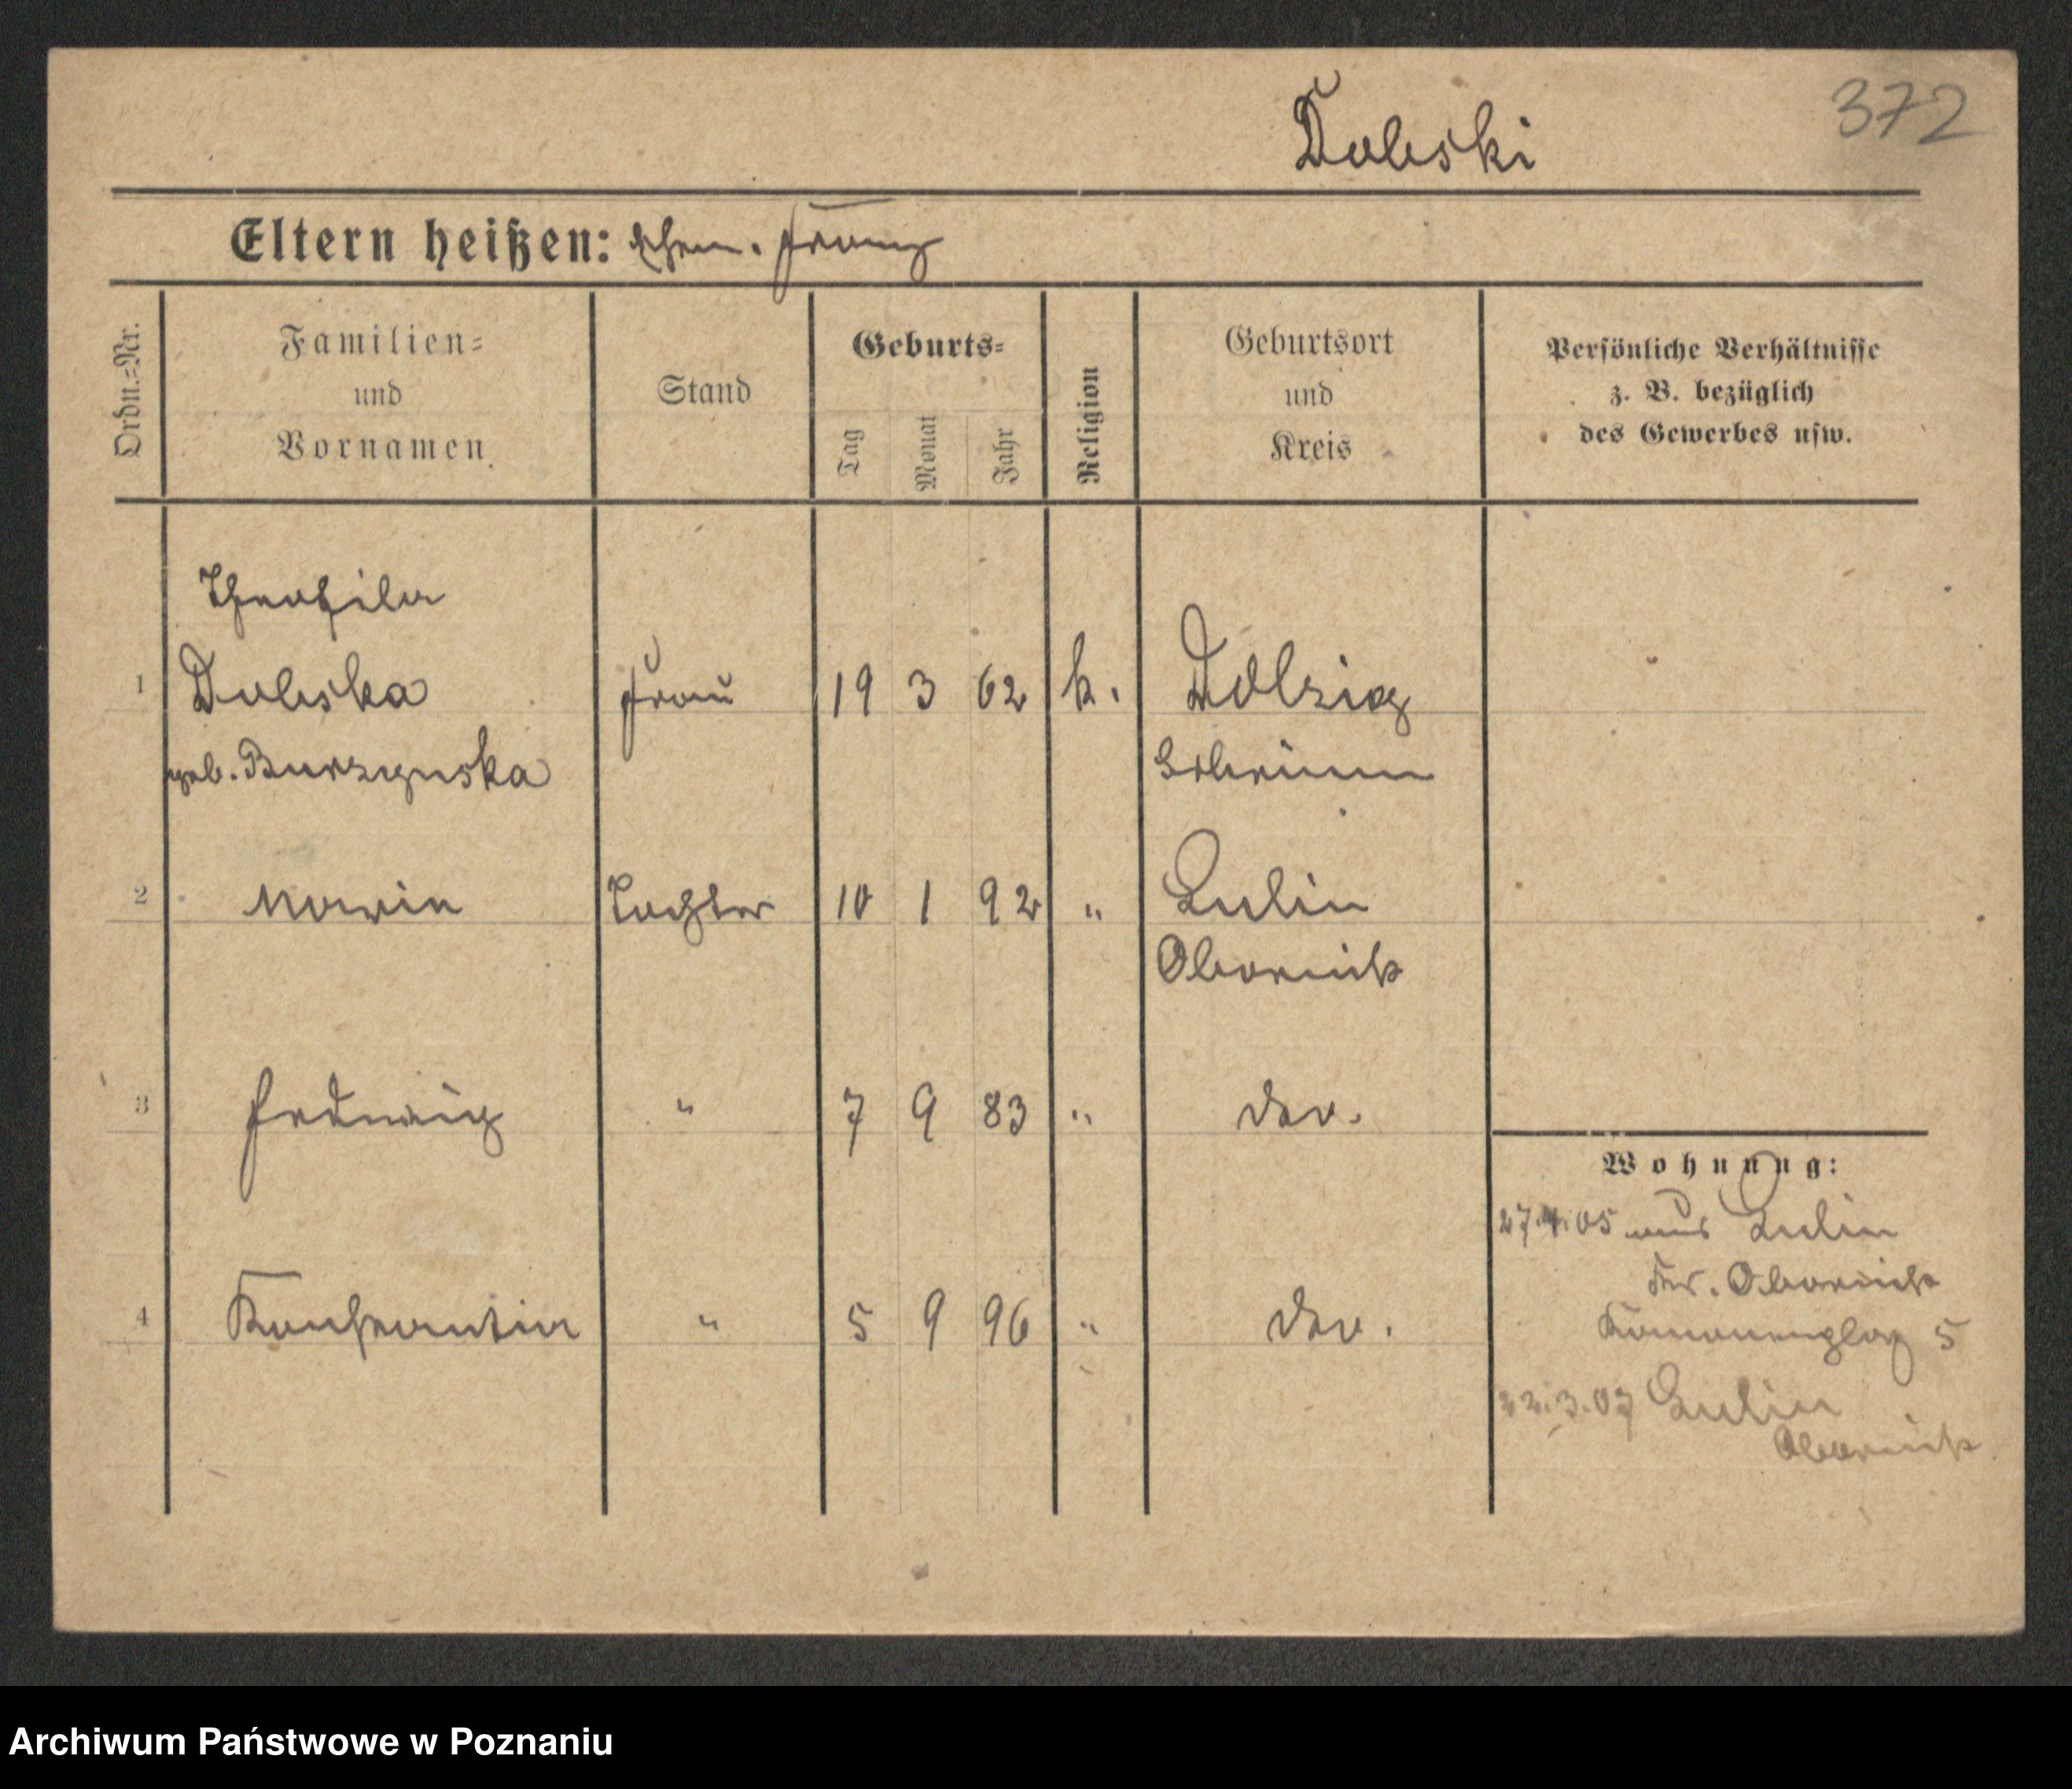 372
Dolski
Eltern heißen: Ehem. Franz
Ordn.=Nr.
Familien=
und
Vornamen.
Stand
Geburts=
Tag
Monat
Jahr
Religion
Geburtsort
und
Kreis
Persönliche Verhältnisse
z. B. bezüglich
des Gewerbes usw.
Theofila
1 Dolska Frau 19 3 62 k. Dolzig
geb. Schrimm
2 Maria Tochter 10 1 92 " Lulin
Obornik
3 Hedwig " 7 9 83 " do.
4 " 5 9 96 " do.
Wohnung:
27.4.05 aus Lulin
Kr. Obornik
5
22.3.07 Lulin
Obornik
Archiwum Państwowe w Poznaniu